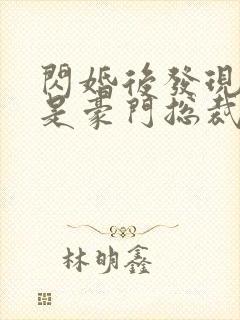 閃婚後發現
是豪門總裁
林明鑫